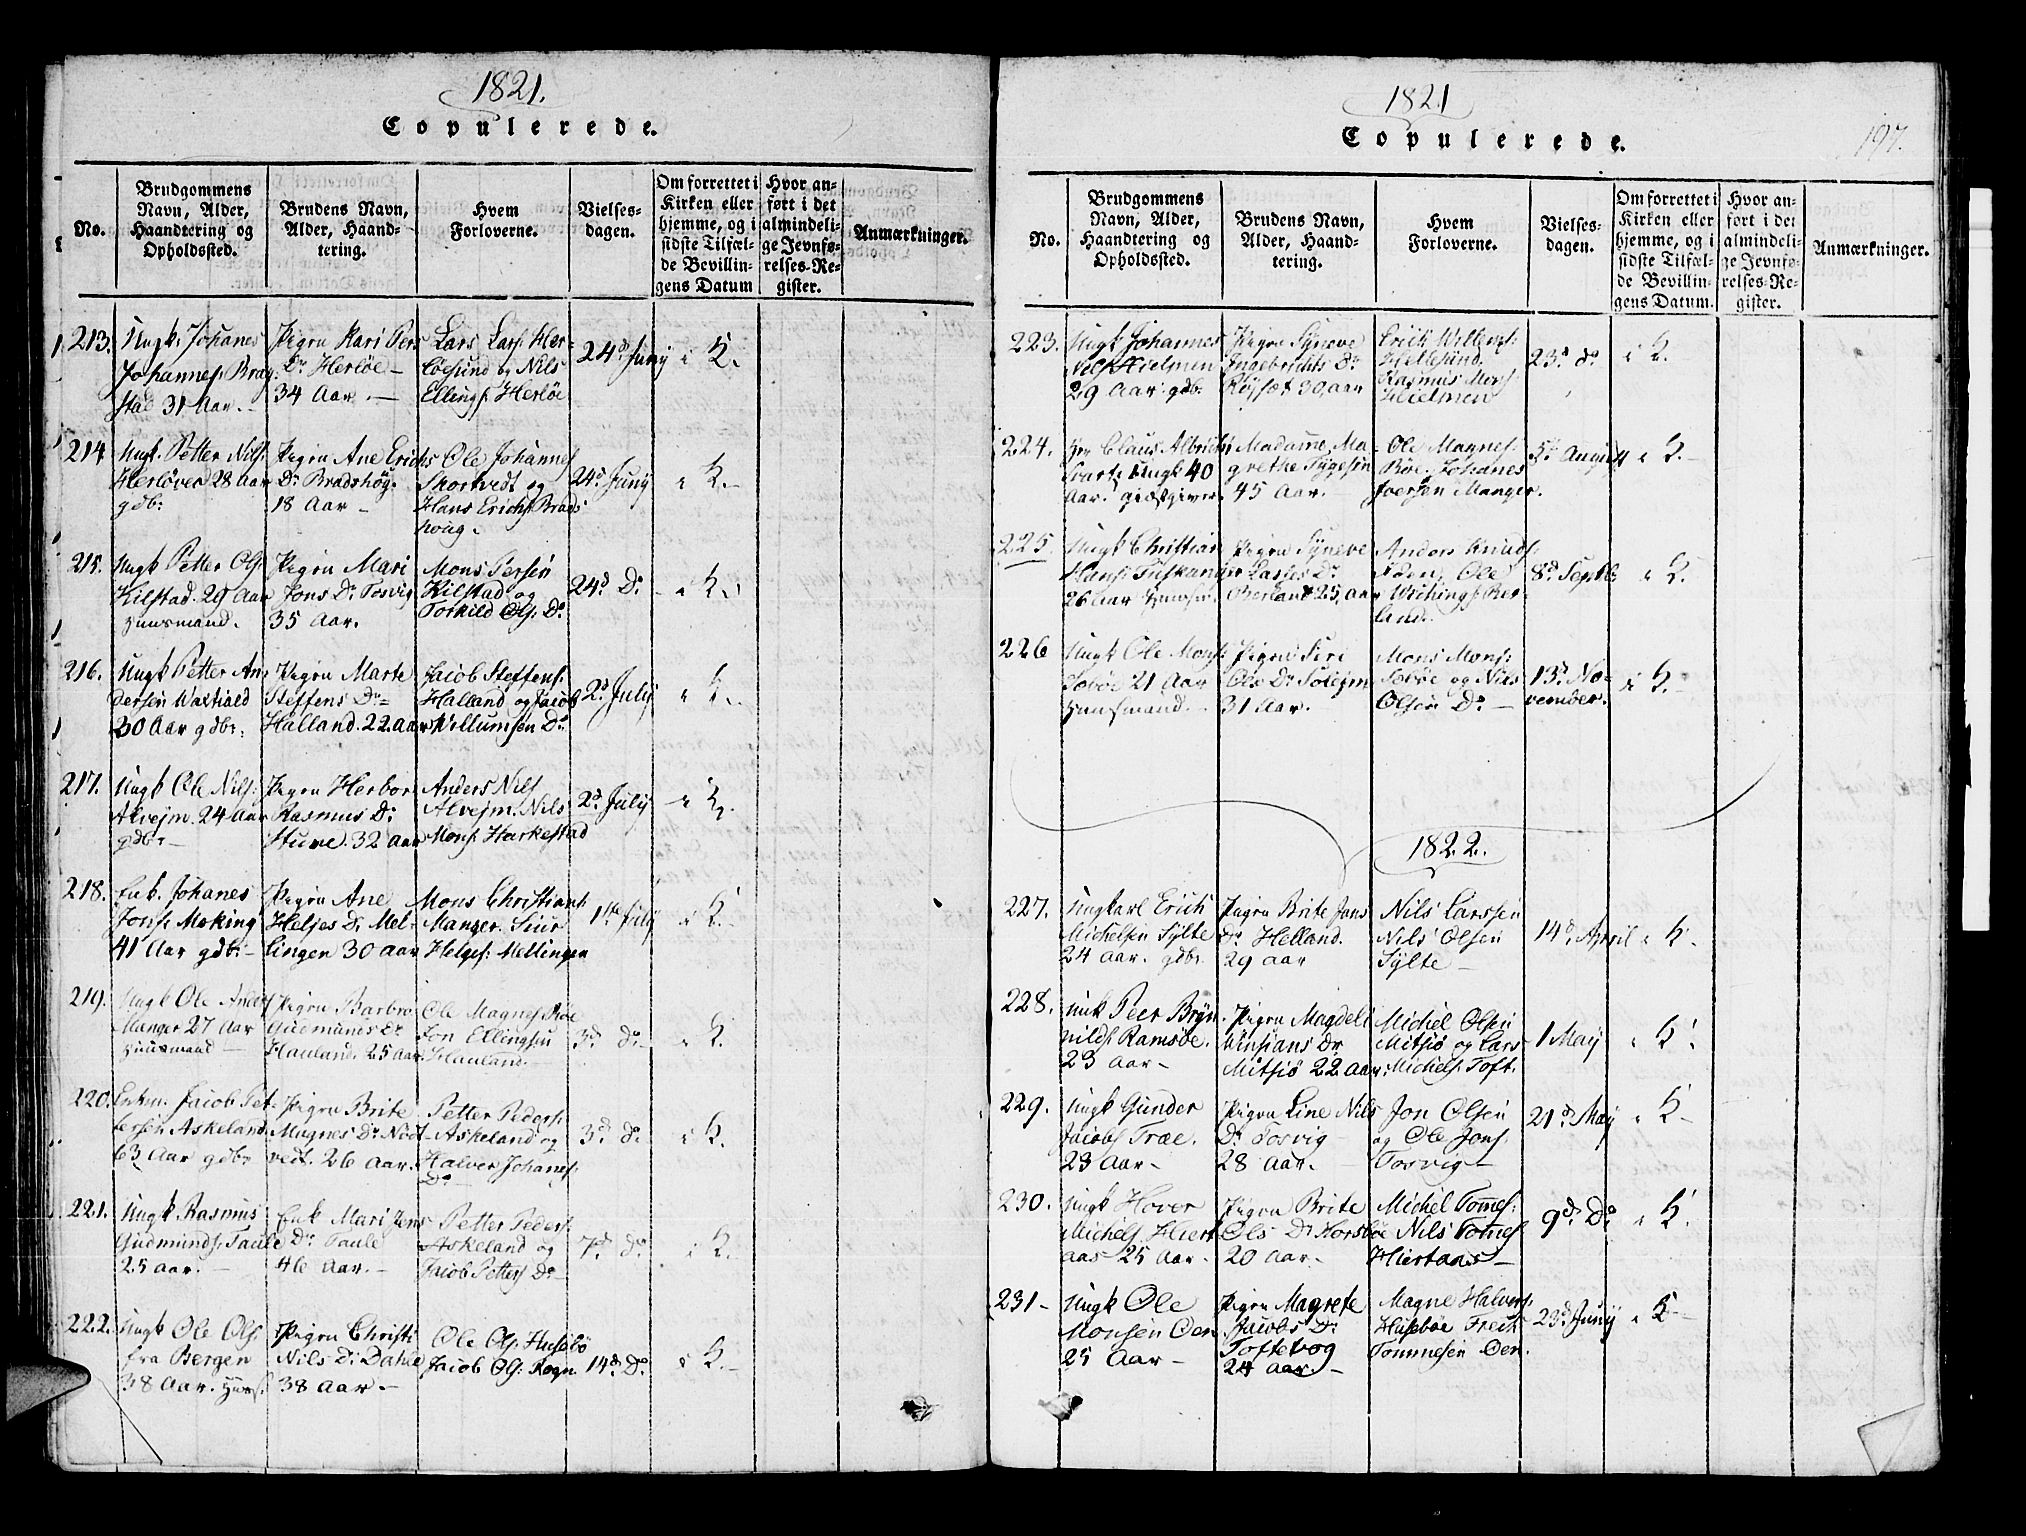 1821.
Copulerede.
No.
Brudgommens Navn, Alder, Haandtering og Opholdssted.
Brudens Navn, Alder, Haandtering.
Hvem Forloverne.
Vielsesdagen.
Om forrettet i Kirken eller hjemme, og i sidste Tilfælde Bevillingens Datum
Hvor anført i det almindelige Jevnførelses-Register.
Anmærkninger.
213. Ungk. Johanes
Johannes: Brag:
stad 31 Aar.
Pigen Kari Pers
Dr. Herløe
34 Aar.
Lars Lars: Her-
løesund og Nils
Ellings: Herløe
24d Juny
i K.
214 Ungk. Petter Nils:
Herløver 28 Aar
gdbr:
Pigen Ane Erichs
Dr. Bradshøg.
18 Aar
Ole Johannes
Skortvedt og
Hans Erichs: Brads
houg.
24d Juny
i K.
215. Ungk Petter Ols:
Kilstad. 29 Aar
Huusmand.
Pigen Mari
Jons Dr. Tosvig
35 Aar.
Mons Persen
Kilstad og
Torkild Ols: Do
24d Do
i K.
216. Ungk Petter An-
dersen
30 Aar gdbr:
Pigen Marte
Steffens Dr.
Halland. 22. aar
Jacob Steffens:
Halland og Jacob
Willumsen Do
2d July
i K.
217. Ungk Ole Nils:
Alvejm. 24 Aar
gdbr
Pigen Herbor
Rasmus Dr
Stuve. 32 Aar
Anders Nils
Alvejm. Nils
Mons: Harkestad
2d July
i K.
218. Enk. Johanes
Jons: Møking
41 Aar gdbr:
Pigen Ane
Heljes Dr. Mel-
lingen 30 aar
Mons Christians:
Manger. Siur
Helges: Mellingen
July
i K.
219. Ungk Ole Anders
Manger 27 Aar
Huusmand
Pigen Barbro
Gudmunds Dr
Hauland. 25 Aar.
Ole Magnes Bøe
Jon Ellingsen
Hauland.
3d Do
i K.
220. Enkm. Jacob Pet-
tersen Askeland
63 Aar gdbr
Pigen Brite
Magnes Dr Nøt-
vedt. 26 Aar.
Petter Peders:
Askeland og
Halver Johanes:
Do
3d Do
i K.
221. Ungk Rasmus
Gudmunds: Taule
25 aar.
Enk Mari Jens
Dr Taule
46 Aar.
Petter Peders:
Askeland og
Jacob Petters Do
7d Do
i K.
222. Ungk Ole Ols:
fra Bergen
38 Aar. Huus:
Pigen Christi
Nils Dr. Dahle
38 Aar.
Ole Ols: Husebø
Jacob Ols: Rogn
14d Do
i K.
1821
Copulerede.
197.
No.
Brudgommens Navn, Alder, Haandtering og Opholdssted.
Brudens Navn, Alder, Haandtering.
Hvem Forloverne.
Vielsesdagen.
Om forrettet i Kirken eller hjemme, og i sidste Tilfælde Bevillingens Datum.
Hvor anført i det almindelige Jevnførelses-Register.
Anmærkninger.
223. Ungk Johannes
Nils: Hielmen
29 Aar. gdb:
Pigen Syneve
Ingebrichts Dr
Røysæt 30. aar
Erich Willums:
Hellesund.
Rasmus Mons:
Hielmen
23d do
i K.
224. Hr Claus Albricht
Ungk 40
Aar. giestgiver
Madame Ma-
grethe Tygesen
45 Aar.
Ole Magnes:
Bøe. Johanes
Joersen Manger.
5d August
i K.
225. Ungk Christian
Hans:
26 Aar Huusm.
Pigen Syneve
Lasses Dr
Berland 25. Aar
Anders Knuds:
Ole
Wichings: Ber-
land.
8d Septb:
i K.
226 Ungk Ole Mons:
Sobøe 21 Aar
Huusmand.
Pigen Siri
Ols Dr Solejm
31 Aar.
Mons Mons:
Sobøe og Nils
Olsen Do
13d No-
vember.
i K.
1822.
227. Ungkarl Erich
Michelsen Sylte
24 Aar. gdbr
Pigen Brite Jans
Dr. Helland.
29 aar
Nils Larssen
Nils Olsen
Sylte
14d April
i K.
228. Unk Peer Bryn-
nilds: Ramsøe.
23 Aar
Pigen Magdeli
Dr
Mitsiø 22 aar.
Michel Olsen
Mitsiø og Lars
Michels: Toft.
1 May
i K.
229. Ungk Gunder
Jacobs Træe.
23 Aar
Pigen Line Nils
Dr. Tosvig
28 Aar.
Jon Olsen
og Ole Jons:
Tosvig
21d May
i K
230. Ungk Hover
Michels Hiert-
aas 25 Aar.
Pigen Brite
Ols Dr Horsbøe
20 Aar.
Michel Tomes:
Nils Tomes
Hiertaas
9d Do
i K.
231 Ungk Ole
Monsen Oen
25 Aar
Pigen Magrete
Jacobs Dr
Toftevog
24 aar.
Magne Halvers:
Husebøe Frech
Tommesen Oen.
23d Juny
i K